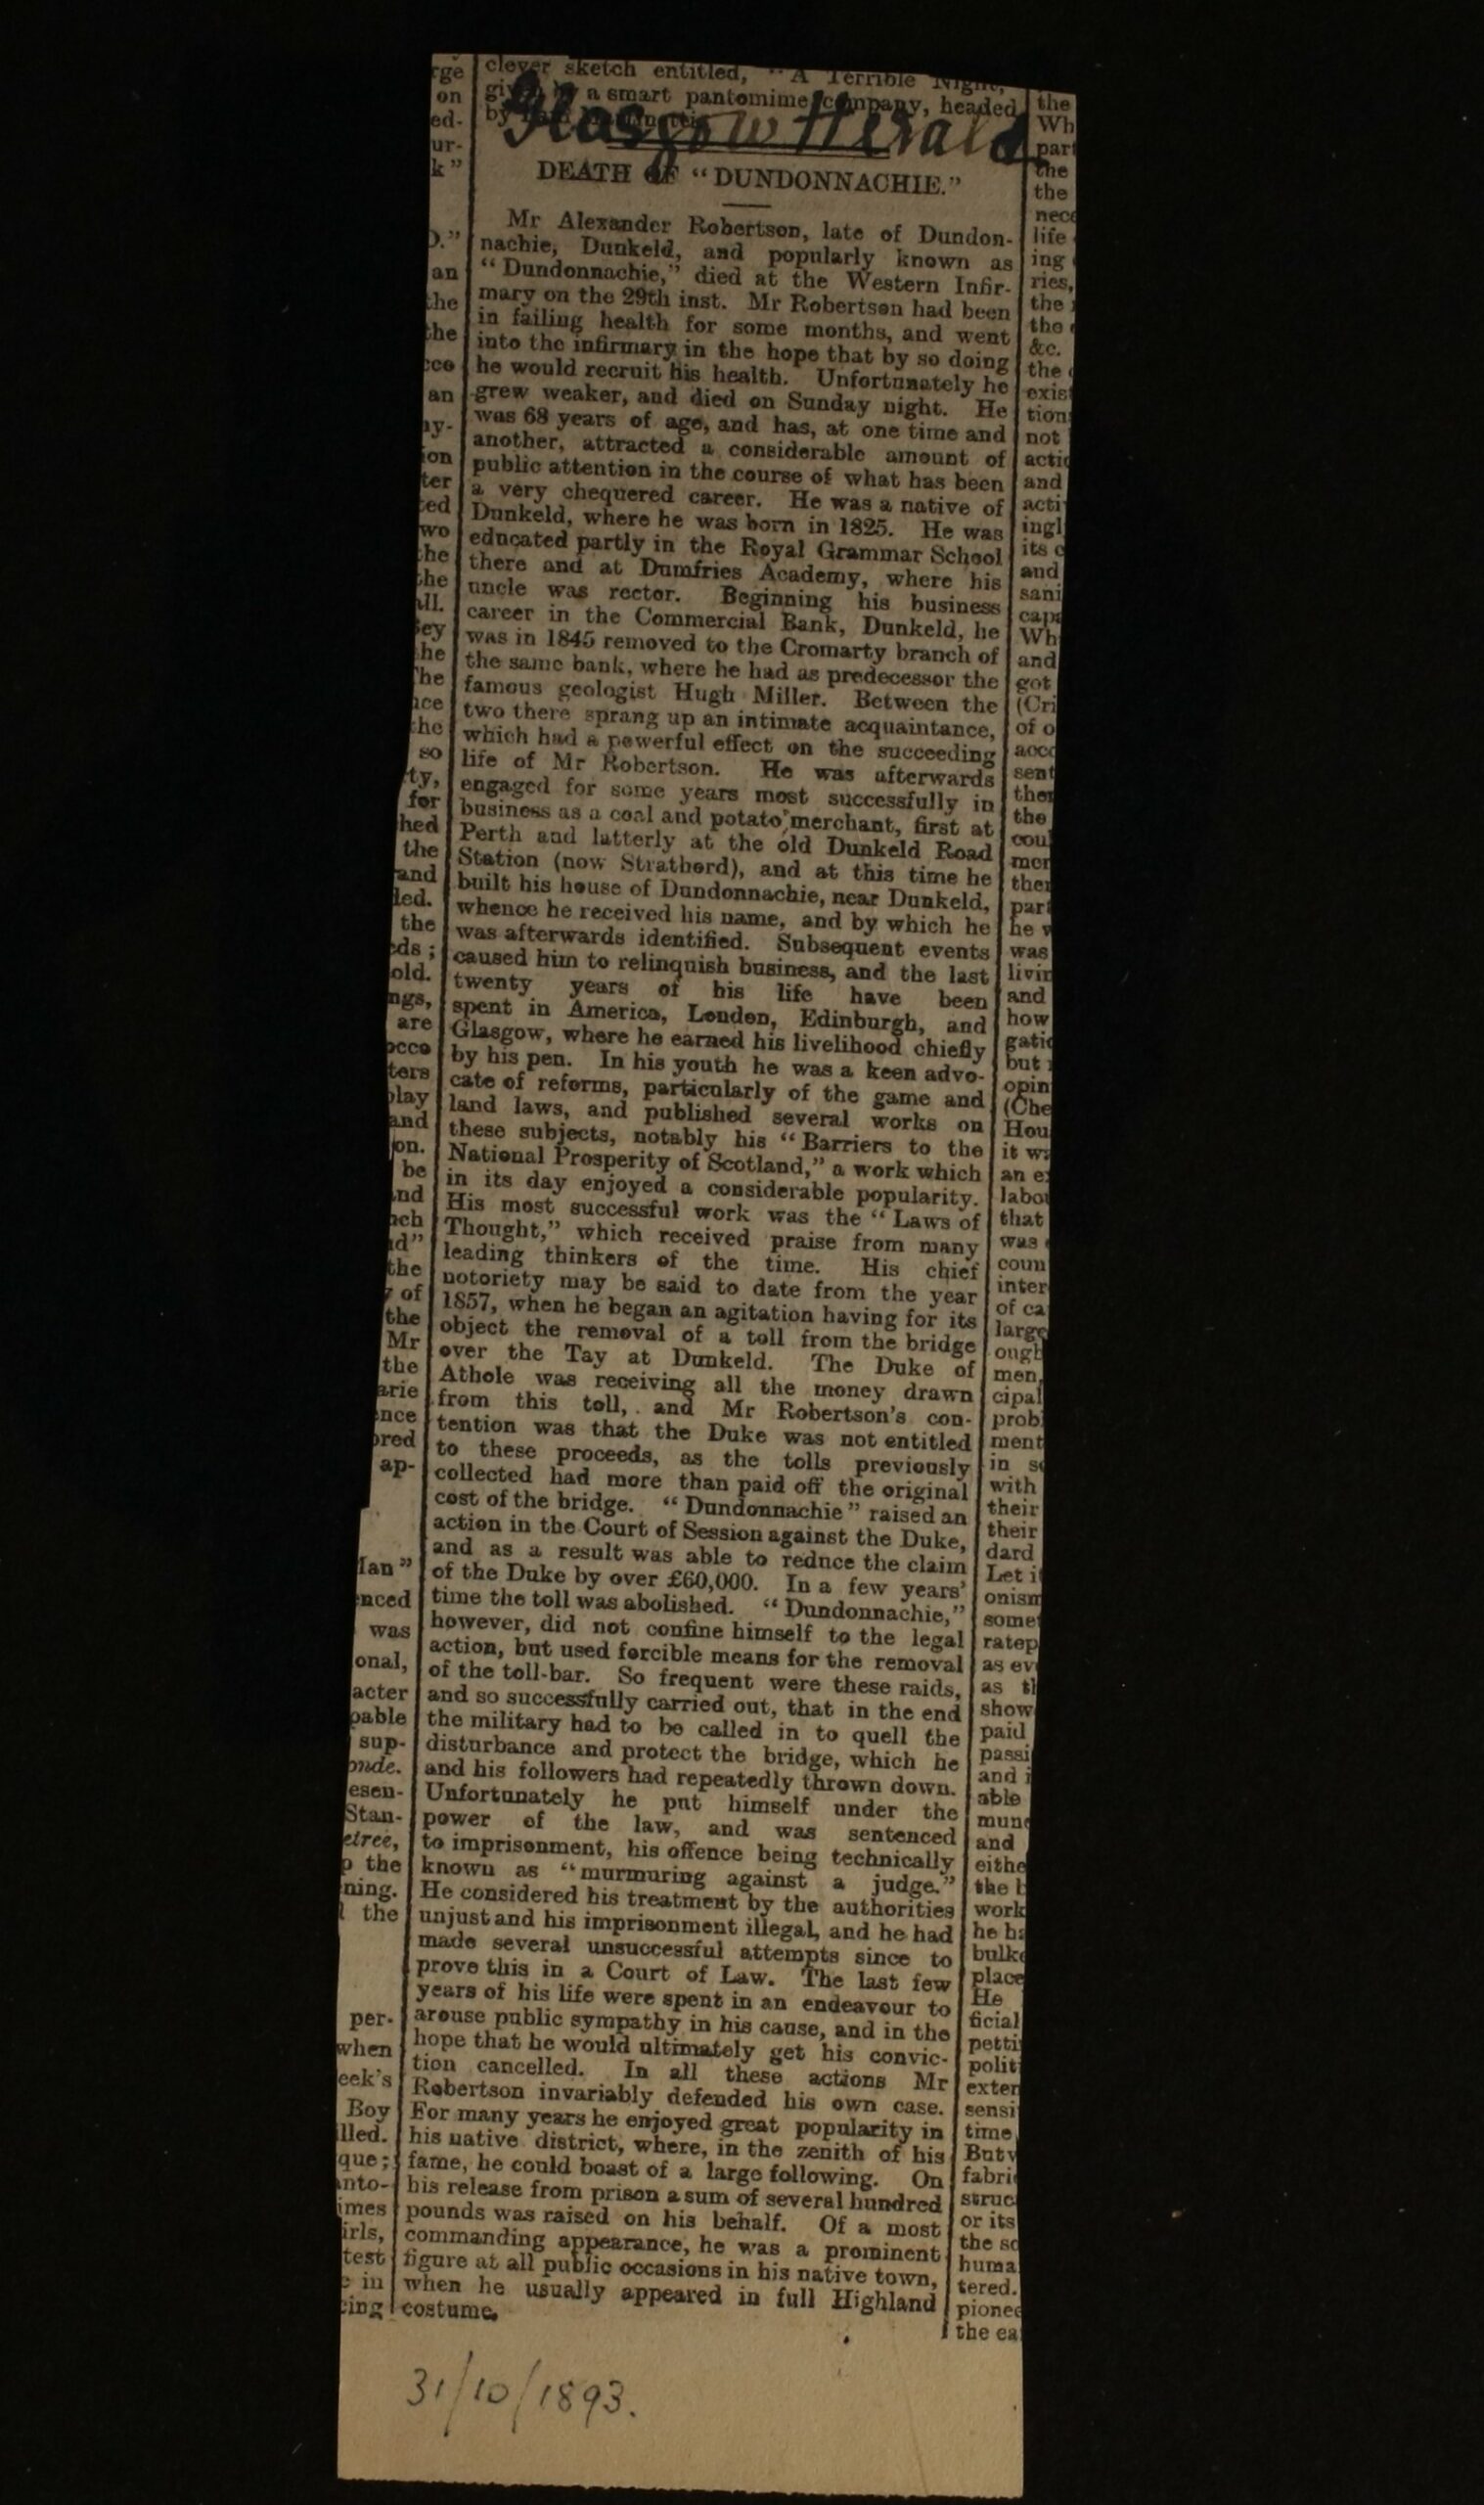 clever sketch entitled, "A Terrible Night,"
a smart pantomime company, headed
by
Glasgow Herald
DEATH OF "DUNDONNACHIE."
Mr Alexander Robertson, late of Dundon-
nachie, Dunkeld, and popularly known as
"Dundonnachie," died at the Western Infir-
mary on the 29th inst. Mr Robertson had been
in failing health for some months, and went
into the infirmary in the hope that by so doing
he would recruit his health. Unfortunately he
grew weaker, and died on Sunday night. He
was 68 years of age, and has, at one time and
another, attracted a considerable amount of
public attention in the course of what has been
a very chequered career. He was a native of
Dunkeld, where he was born in 1825. He was
educated partly in the Royal Grammar School
there and at Dumfries Academy, where his
uncle was rector. Beginning his business
career in the Commercial Bank, Dunkeld, he
was in 1845 removed to the Cromarty branch of
the same bank, where he had as predecessor the
famous geologist Hugh Miller. Between the
two there sprang up an intimate acquaintance,
which had a powerful effect on the succeeding
life of Mr Robertson. He was afterwards
engaged for some years most successfully in
business as a coal and potato merchant, first at
Perth and latterly at the old Dunkeld Road
Station (now Strathord), and at this time he
built his house of Dundonnachie, near Dunkeld,
whence he received his name, and by which he
was afterwards identified. Subsequent events
caused him to relinquish business, and the last
twenty years of his life have been
spent in America, London, Edinburgh, and
Glasgow, where he earned his livelihood chiefly
by his pen. In his youth he was a keen advo-
cate of reforms, particularly of the game and
land laws, and published several works on
these subjects, notably his "Barriers to the
National Prosperity of Scotland," a work which
in its day enjoyed a considerable popularity.
His most successful work was the "Laws of
Thought," which received praise from many
leading thinkers of the time. His chief
notoriety may be said to date from the year
1857, when he began an agitation having for its
object the removal of a toll from the bridge
over the Tay at Dunkeld. The Duke of
Athole was receiving all the money drawn
from this toll, and Mr Robertson's con-
tention was that the Duke was not entitled
to these proceeds, as the tolls previously
collected had more than paid off the original
cost of the bridge. "Dundonnachie" raised an
action in the Court of Session against the Duke,
and as a result was able to reduce the claim
of the Duke by over £60,000. In a few years'
time the toll was abolished. "Dundonnachie,"
however, did not confine himself to the legal
action, but used forcible means for the removal
of the toll-bar. So frequent were these raids,
and so successfully carried out, that in the end
the military had to be called in to quell the
disturbance and protect the bridge, which he
and his followers had repeatedly thrown down.
Unfortunately he put himself under the
power of the law, and was sentenced
to imprisonment, his offence being technically
known as "murmuring against a judge."
He considered his treatment by the authorities
unjust and his imprisonment illegal, and he had
made several unsuccessful attempts since to
prove this in a Court of Law. The last few
years of his life were spent in an endeavour to
arouse public sympathy in his cause, and in the
hope that he would ultimately get his convic-
tion cancelled. In all these actions Mr
Robertson invariably defended his own case.
For many years he enjoyed great popularity in
his native district, where, in the zenith of his
fame, he could boast of a large following. On
his release from prison a sum of several hundred
pounds was raised on his behalf. Of a most
commanding appearance, he was a prominent
figure at all public occasions in his native town,
when he usually appeared in full Highland
costume.
31/10/1893.